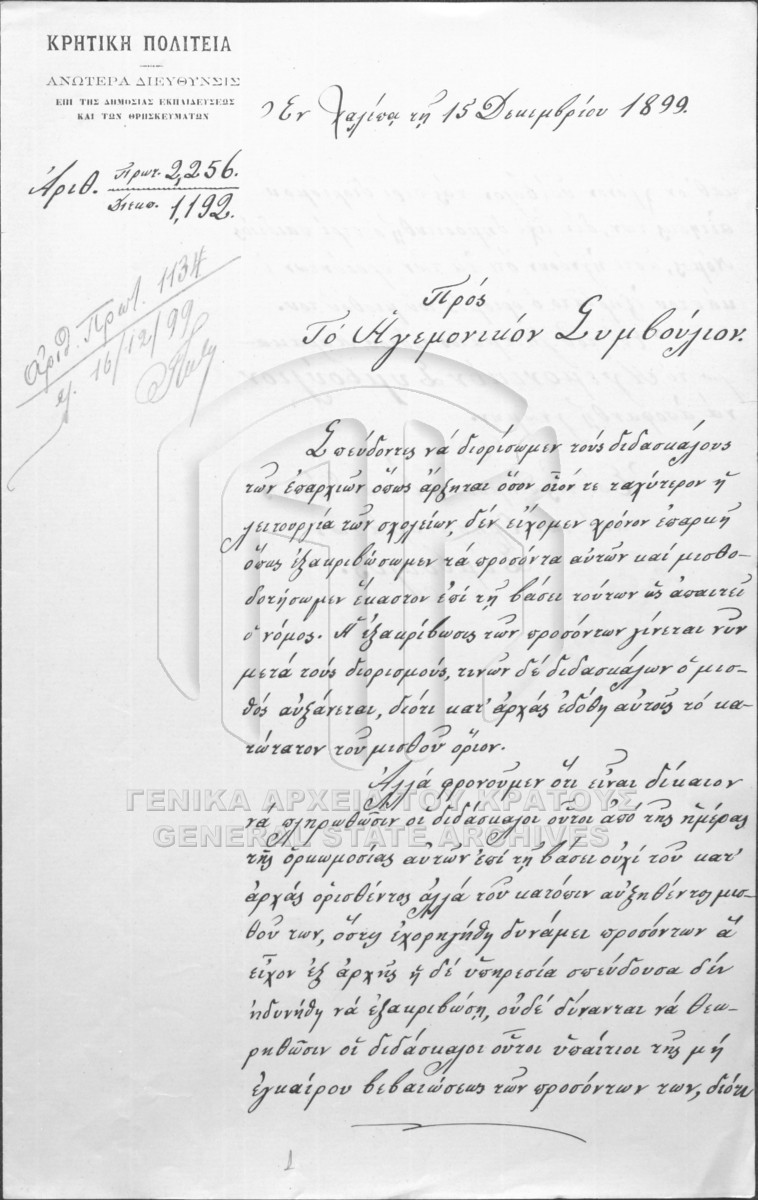 ΚΡΗΤΙΚΗ ΠΟΛΙΤΕΙΑ
ΑΝΩΤΕΡΑ ΔΙΕΥΘΥΝΣΙΣ
ΕΠΙ ΤΗΣ ΔΗΜΟΣΙΑΣ ΕΚΠΑΙΔΕΥΣΕΩΣ
ΚΑΙ ΤΩΝ ΘΡΗΣΚΕΥΜΑΤΩΝ
Ἐν Χαλέπᾳ τῇ 15 Δεκεμβρίου 1899.
Ἀριθ. Πρωτ. 2,256.
Διεκπ. 1,192.
ἀριθ. Πρωτ. 1134
16/12/99
Πρός
Τό Ἡγεμονικόν Συμβούλιον.
Σπεύδοντες νά διορίσωμεν τούς διδασκάλους
τῶν ἐπαρχιῶν ὅπως ἄρξηται ὅσον οἷόν τε ταχύτερον ἡ
λειτουργία τῶν σχολείων, δέν εἴχομεν χρόνον ἐπαρκῆ
ὅπως ἐξακριβώσωμεν τά προσόντα αὐτῶν καί μισθο-
δοτήσωμεν ἕκαστον ἐπί τῇ βάσει τούτων ὡς ἀπαιτεῖ
ὁ νόμος. Ἡ ἐξακρίβωσις τῶν προσόντων γίνεται νῦν
μετά τούς διορισμούς, τινῶν δέ διδασκάλων ὁ μισ-
θός αὐξάνεται, διότι κατ' ἀρχάς ἐδόθη αὐτοῖς τό κα-
τώτατον τοῦ μισθοῦ ὅριον.
Ἀλλά φρονοῦμεν ὅτι εἶναι δίκαιον
νά πληρωθῶσιν οἱ διδάσκαλοι οὗτοι ἀπό τῆς ἡμέρας
τῆς ὁρκωμοσίας αὐτῶν ἐπί τῇ βάσει οὐχί τοῦ κατ'
ἀρχάς ὁρισθέντος ἀλλά τοῦ κατόπιν αὐξηθέντος μισ-
θοῦ των, ὅστις ἐχορηγήθη δυνάμει προσόντων ἅ
εἶχον ἐξ ἀρχῆς ἡ δέ ὑπηρεσία σπεύδουσα δέν
ἠδυνήθη νά ἐξακριβώσῃ, οὐδέ δύνανται νά θεω-
ρηθῶσιν οἱ διδάσκαλοι οὗτοι ὑπαίτιοι τῆς μή
ἐγκαίρου βεβαιώσεως τῶν προσόντων των, διότι
1
ΓΕΝΙΚΑ ΑΡΧΕΙΑ ΤΟΥ ΚΡΑΤΟΥΣ
GENERAL STATE ARCHIVES